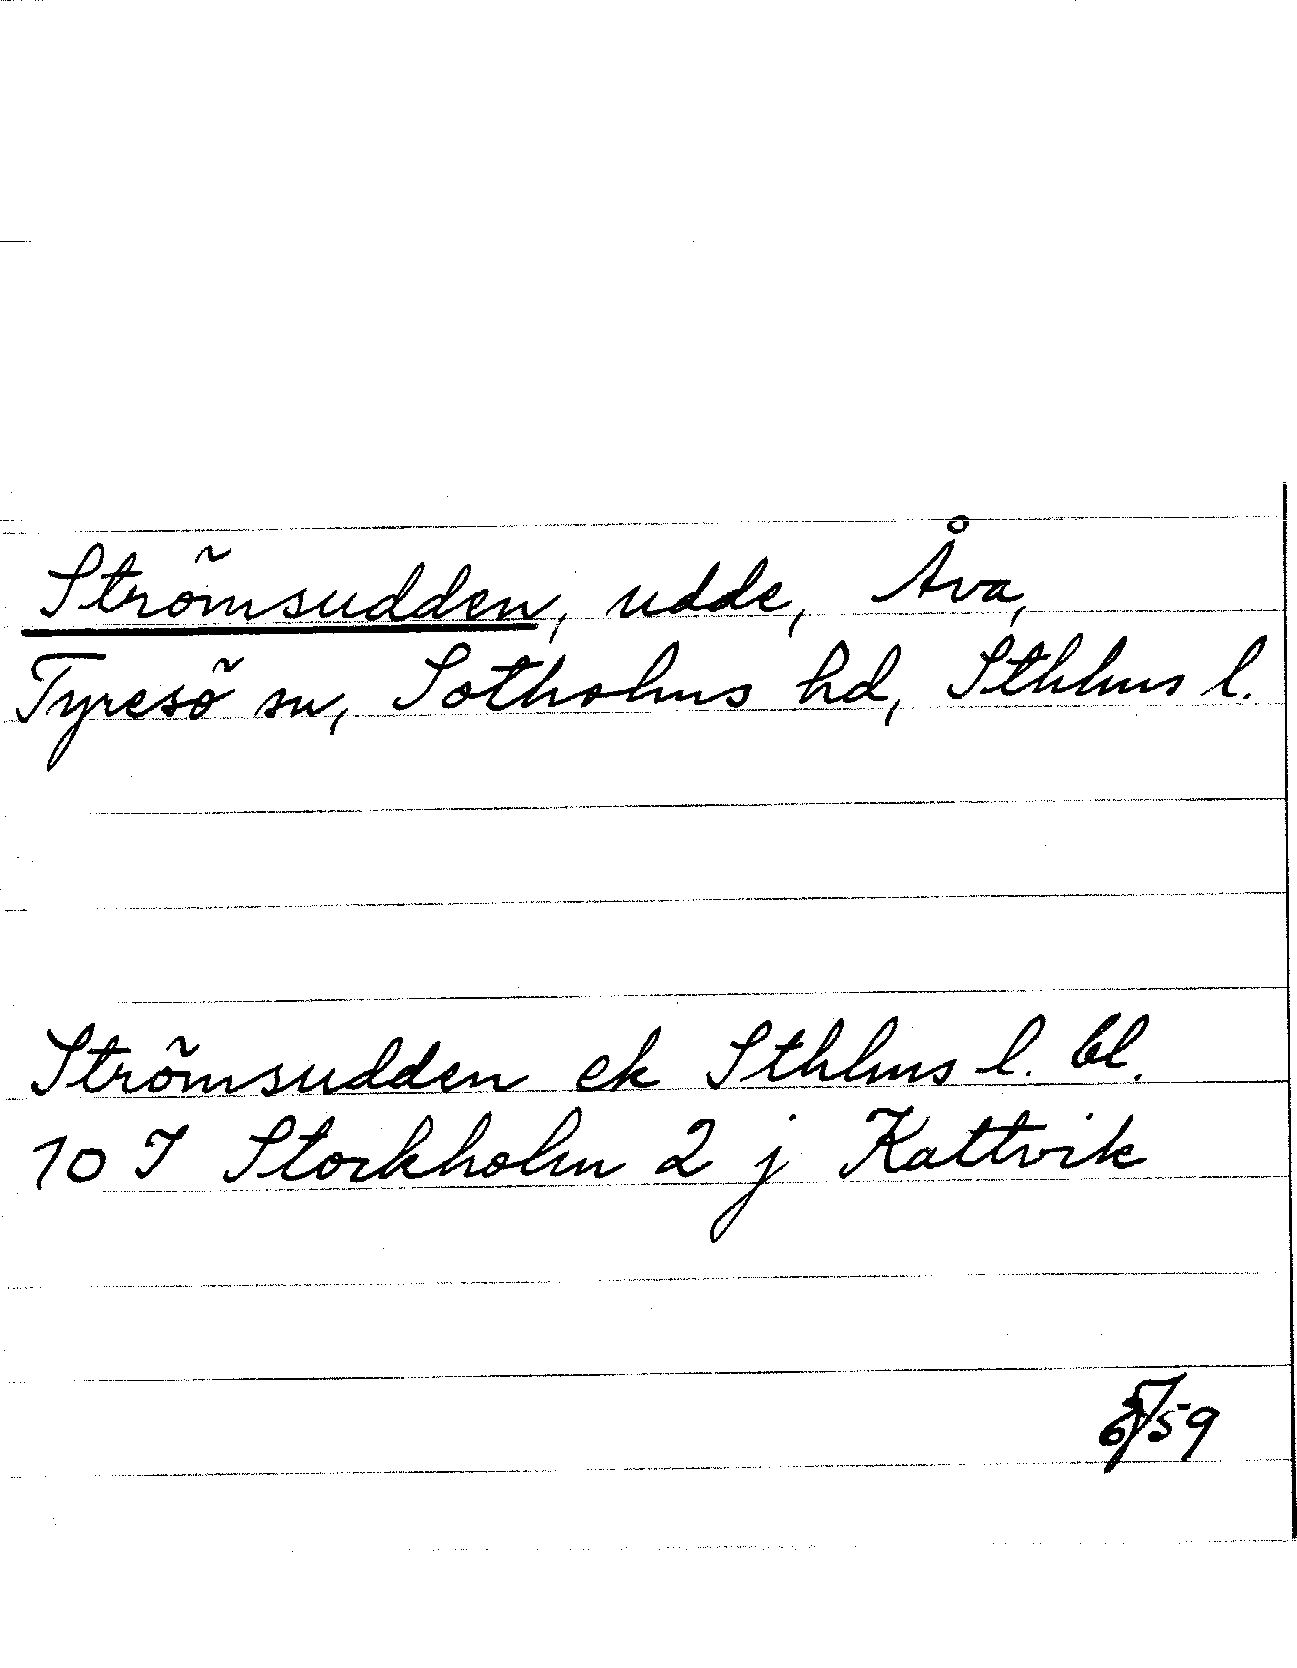 Strömsudden, udde, Åva,
Tyresö sn, Sotholms hd, Sthlms l.
Strömsudden ek Sthlms l. bl.
10 I Stockholm 2 j Kattvik